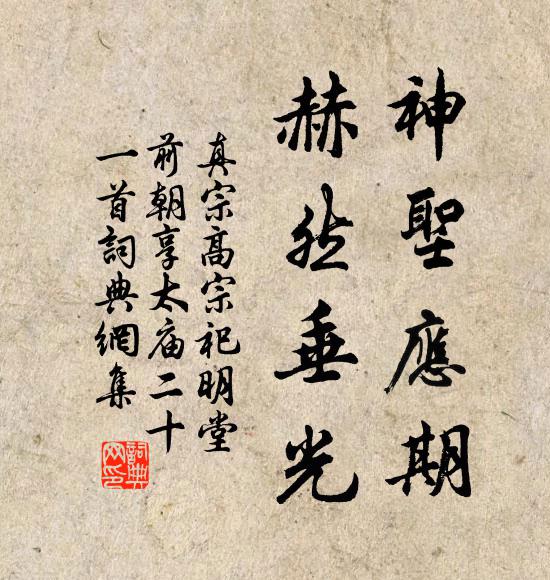 神聖應期
赫然垂光
真宗高宗祀明堂
前朝享太庙二十
一首詞典網集
詞典
网印